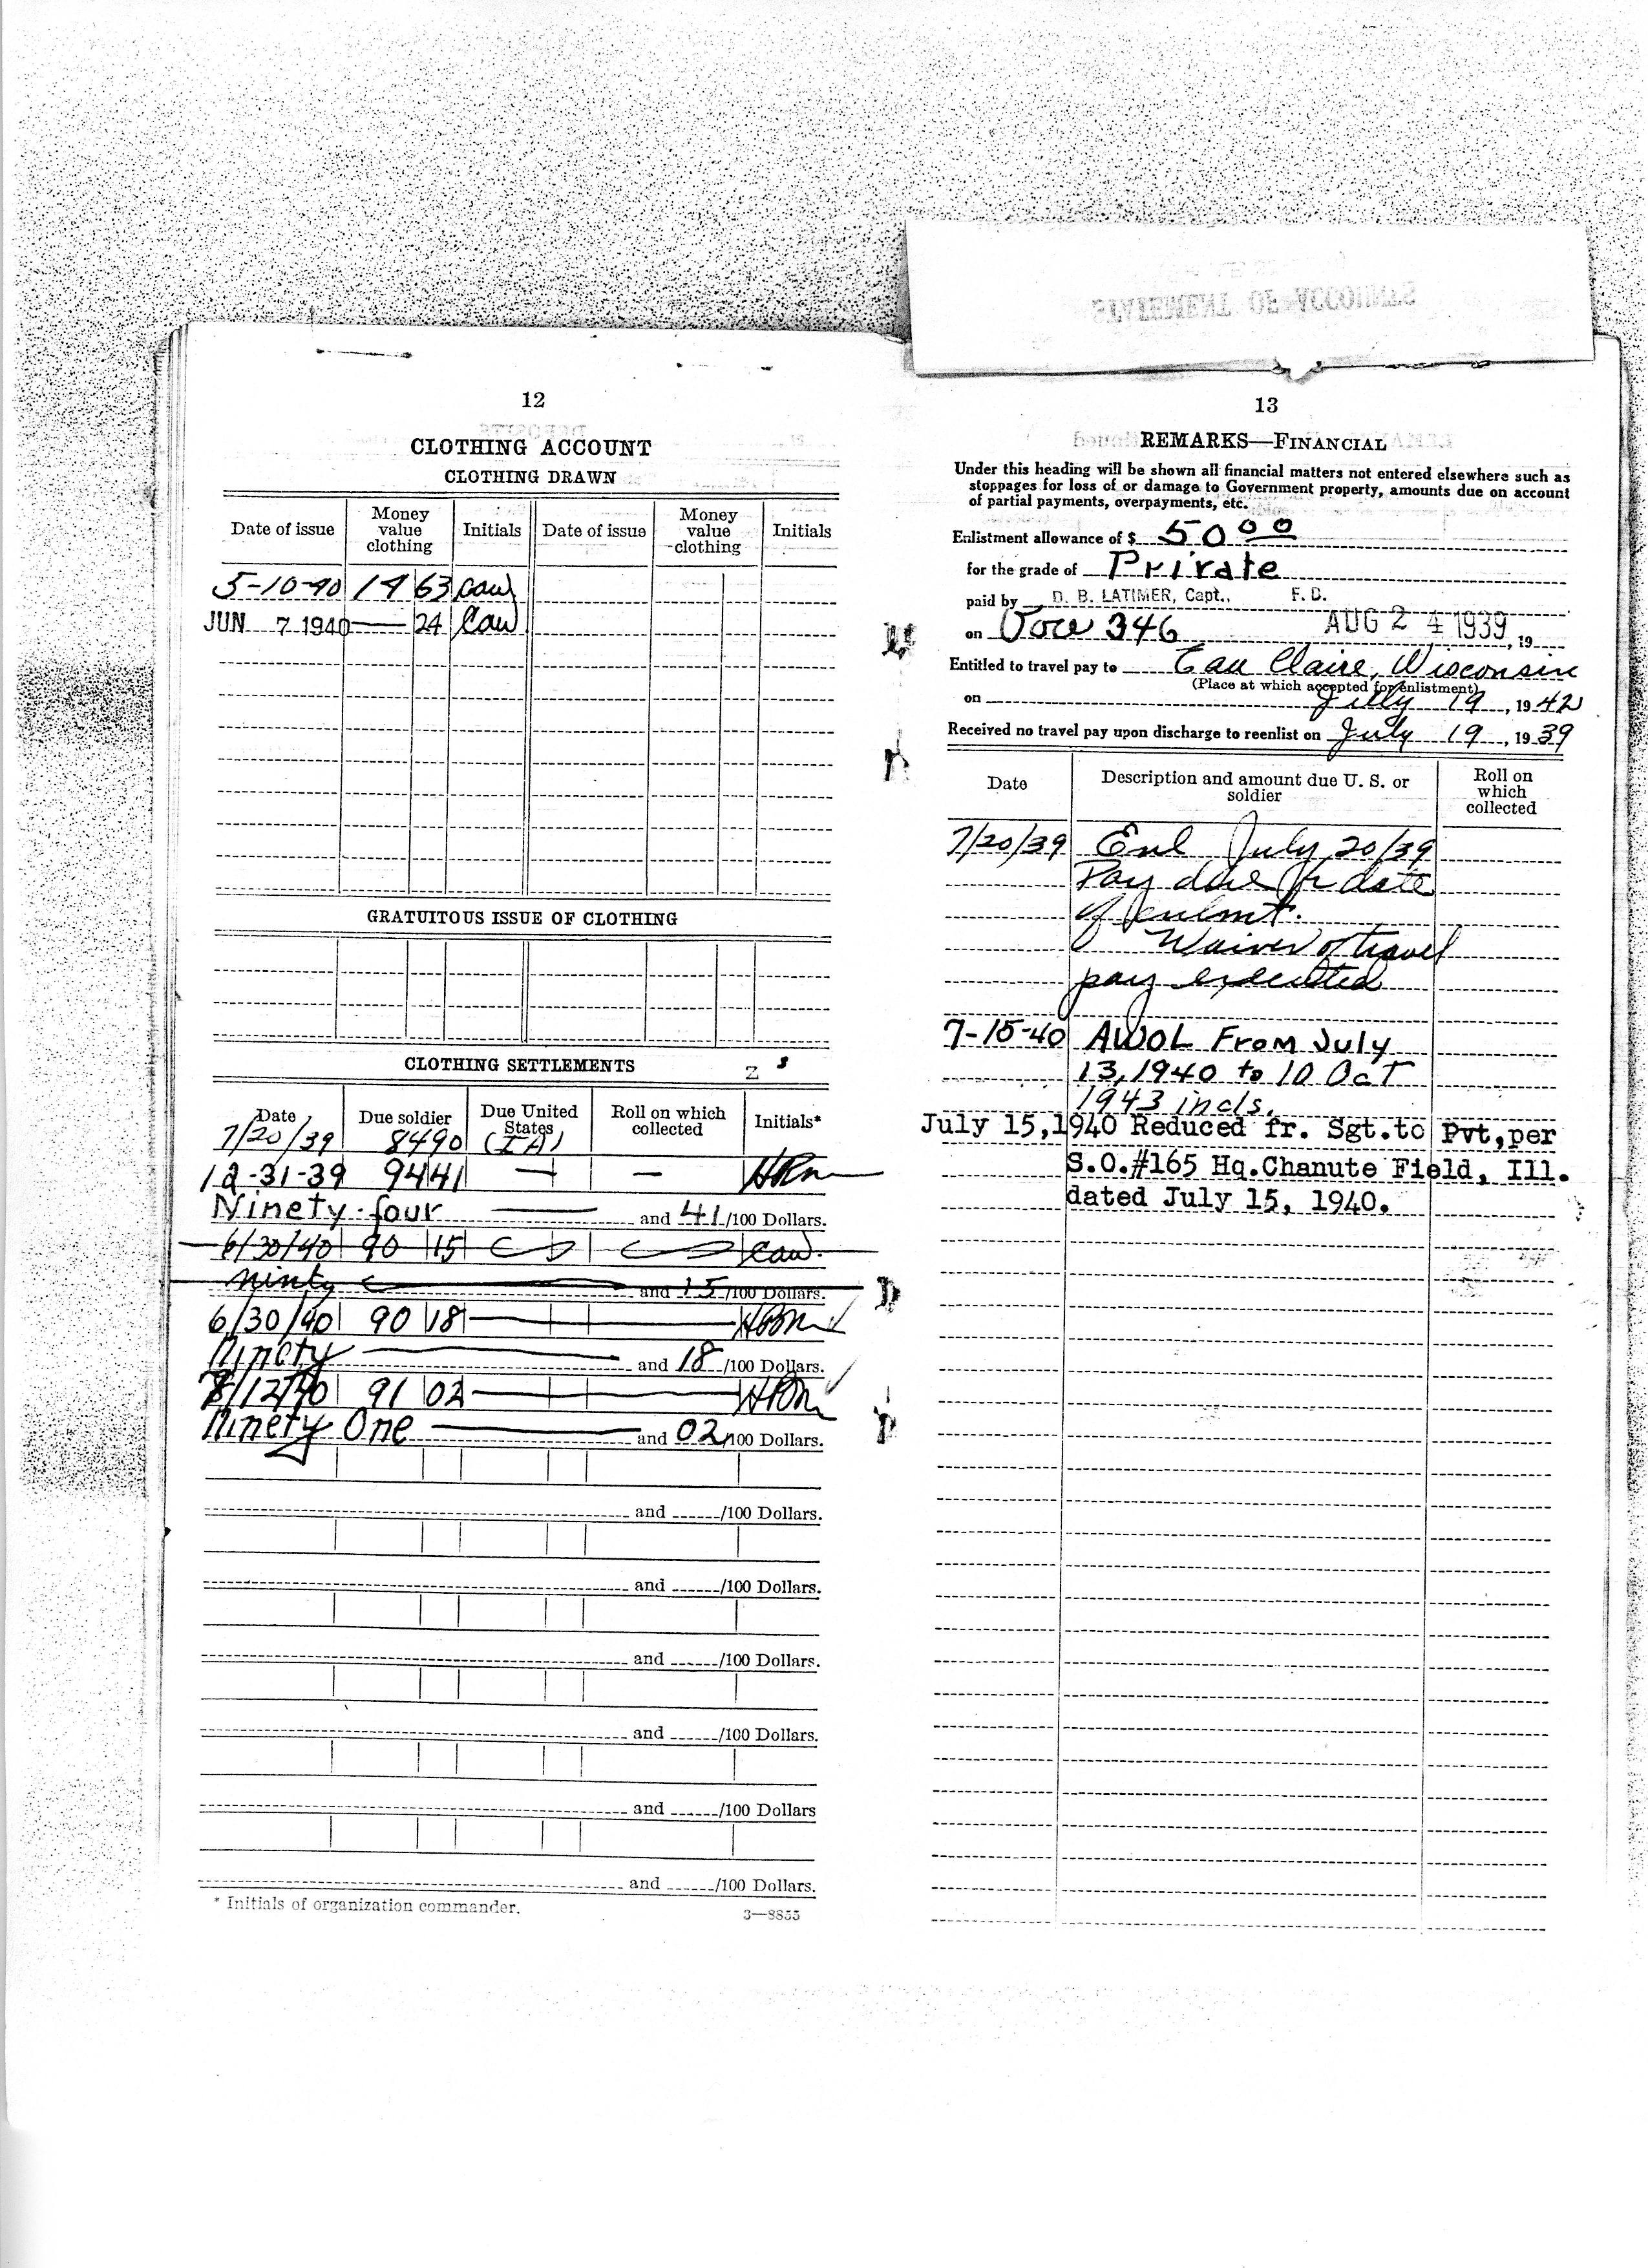 12
CLOTHING ACCOUNT
CLOTHING DRAWN
Date of issue Money value clothing Initials Date of issue Money value clothing Initials
5-10-40 14 63 caw
JUN 7 1940 — 24 Caw
GRATUITOUS ISSUE OF CLOTHING
CLOTHING SETTLEMENTS
Z
Date Due soldier Due United States Roll on which collected Initials*
7/20/39 8490 (IA)
12-31-39 94 41 — —
Ninety-four and 41/100 Dollars.
6/30/40 90 15 caw
Ninty and 15/100 Dollars.
6/30/40 90 18
Ninety and 18/100 Dollars.
8/12/40 91 02
Ninety One and 02/100 Dollars.
and /100 Dollars.
and /100 Dollars.
and /100 Dollars.
and /100 Dollars.
and /100 Dollars
and /100 Dollars.
* Initials of organization commander.
3—8855
STATEMENT OF ACCOUNTS
13
REMARKS—FINANCIAL
Under this heading will be shown all financial matters not entered elsewhere such as
stoppages for loss of or damage to Government property, amounts due on account
of partial payments, overpayments, etc.
Enlistment allowance of $ 50 00
for the grade of Private
paid by D. B. LATIMER, Capt., F. D.
on Vou 346 AUG 24 1939, 19
Entitled to travel pay to Eau Claire, Wisconsin
(Place at which accepted for enlistment)
on July 19, 1942
Received no travel pay upon discharge to reenlist on July 19, 1939
Date Description and amount due U. S. or soldier Roll on which collected
7/20/39 Enl July 20/39
Pay due fr date
of enlmt.
Waiver of travel
pay executed
7-15-40 AWOL From July
13, 1940 to 10 Oct
1943 incls.
July 15, 1940 Reduced fr. Sgt. to Pvt, per
S.O.#165 Hq.Chanute Field, Ill.
dated July 15, 1940.